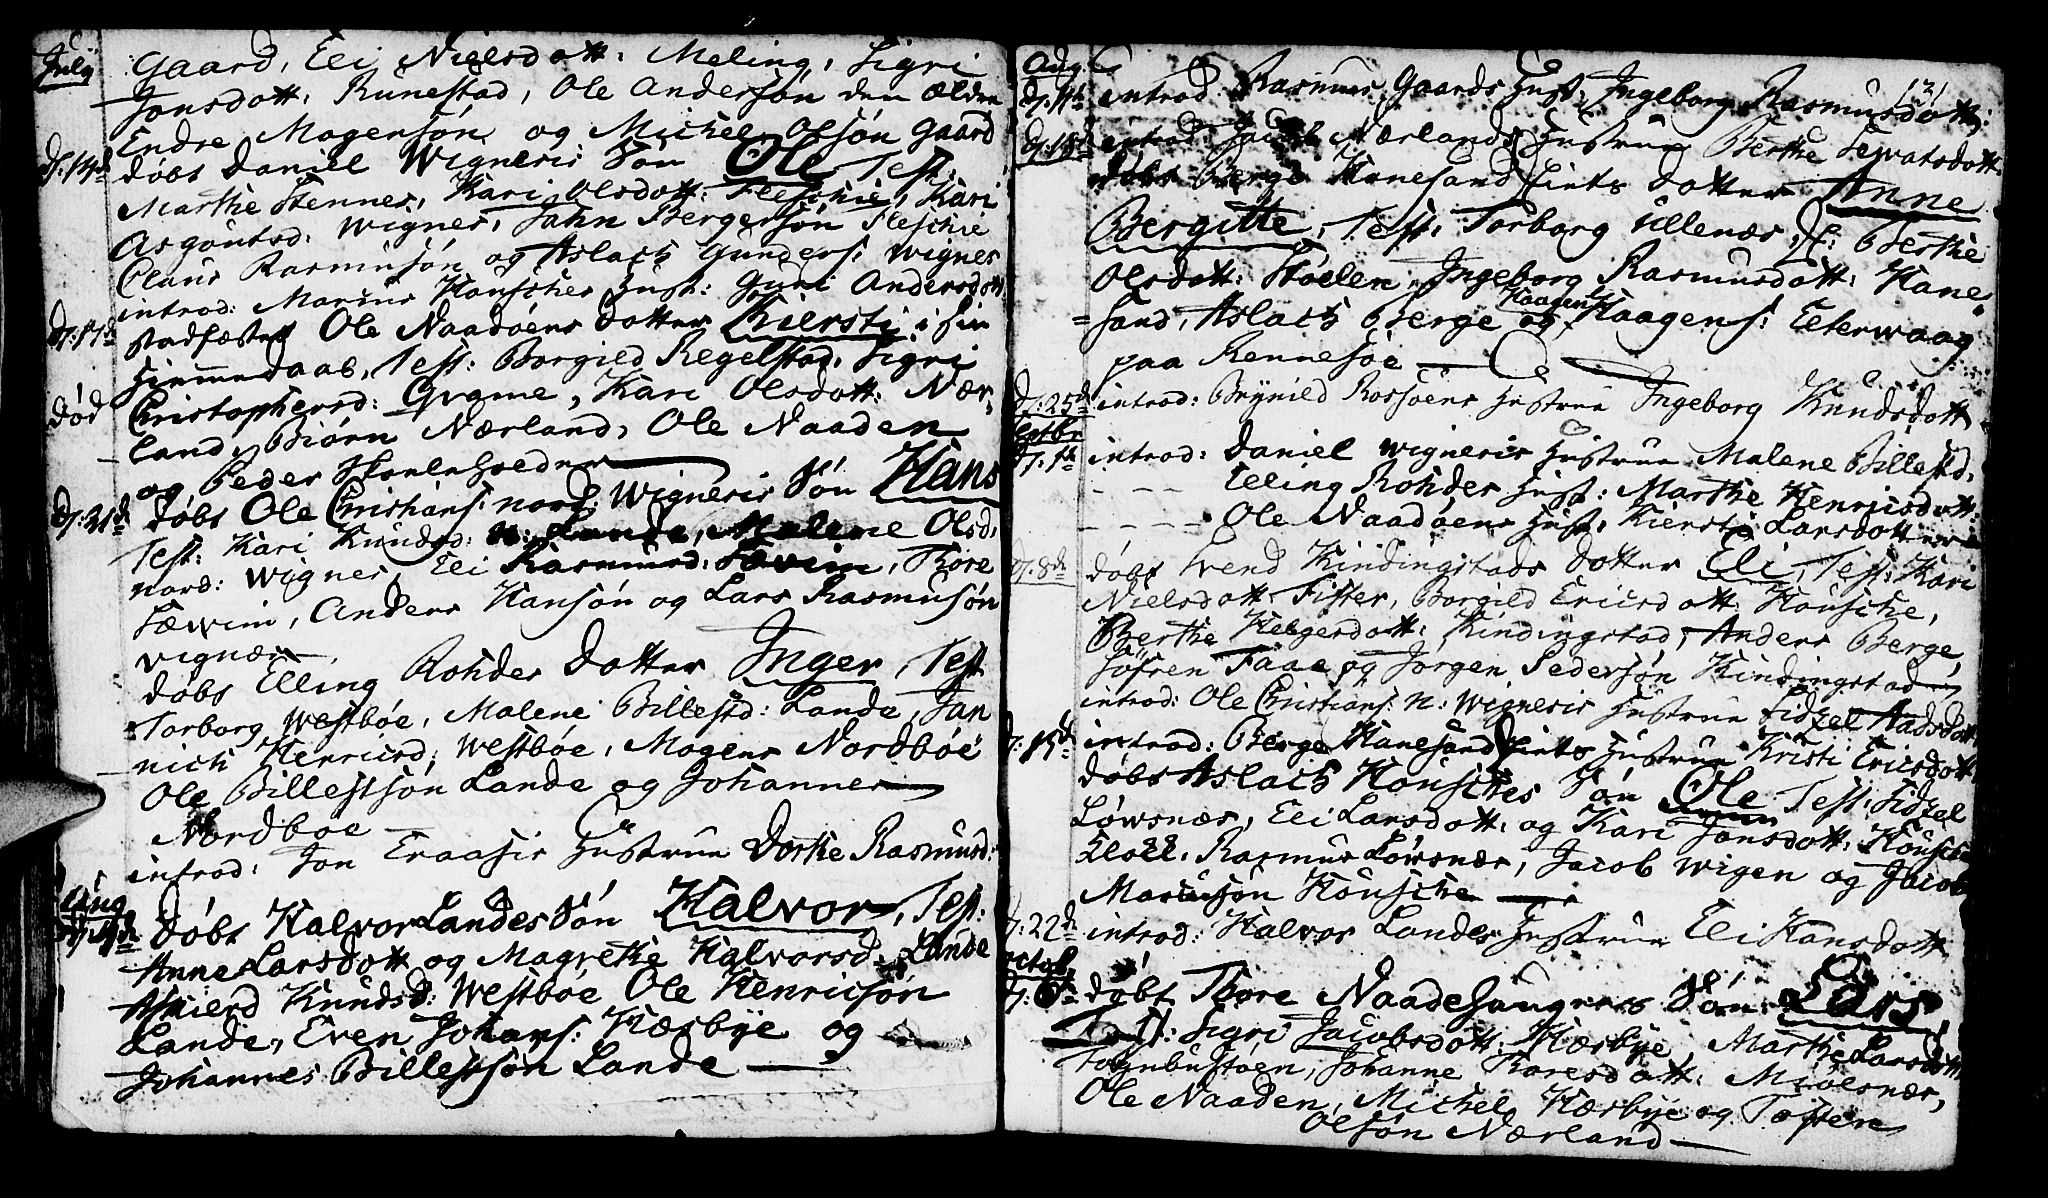 July
Gaard, Eli Nielsdott: Meling, Sigri
Jonsdott: Runestad, Ole Andersøn den ældre
Endre Mogensøn og Michel Olsøn Gaard
d: 14de døbt Daniel Wignesis Søn Ole Test:
Marthe Stennes, Kari Olsdott: Fleschie, Kari
Asgoutsd: Wignes, Jahn Bergersøn Fleschie
Claus Rasmusøn og Aslach Gunders: Wignes
introd: Marius Hauschies Hust: Guri Andersdott
d: 17de stadfæstet Ole Naadøens dotter Kiersti i sin
Hiemmedaab, Test: Borgild Regelstad, Sigri
død Christophersd: Gygme, Kari Olsdott: Nær
land, Biørn Nærland, Ole Naaden
og Peder
d: 21de døbt Ole Christians: nord: Wignesis Søn Hans
Test: Kari Knudsd: n: Lande, Malene Olsd:
nord: Wignes, Eli Rasmusd: Søvim, Tore
Søwim, Anders Hansøn og Lars Rasmusøn
vignæs
døbt Elling Rohdes dotter Inger, Test
Torborg Westbøe, Malene Billestd: Lande, Jan
nich Henricsd: Westbøe, Mogens Nordbøe
Ole Billestsøn Lande og Johannes
Nordboe
introd: Jon Eraasis Hustrue Dorthe Rasmusd:
Aug
døbt Halvor Landes Søn Halvor, Test:
Anne Larsdott og Magrethe Halvorsd: Lande
Knudsd: Westbøe Ole Henricsøn
Lande, Even Johans: Hæsbye og
Johannes Billestsøn Lande
Aug: 121
d: 11te introd Rasmus Gaards Hust: Ingeborg Rasmusdott:
d: 18de introd Jacob Nærlands Hustrue Berthe Sewatsdott
døbt Berge Hanesand dotter Anne
Bergitte, Test: Torborg Ullenæs, Berthe
Olsdott: Støelen, Ingeborg Rasmusdott: Hane
sand, Aslach Berge og Haagen Haagens: Eeterwaag
paa Rennesøe
d: 25de introd: Brynild Rossøens Hustrue Ingeborg Knudsdott
Septbr
d: 1te introd: Daniel Wignesis Hustrue Malene Billestd:
- - - Elling Rohdes Hust: Marthe Henricsdott:
- - - - Ole Naadøens Hust: Kiersti Larsdotter
d: 8de døbt Svend Kindingstads dotter Eli, Test: Kari
Nielsdott Fister, Borgild Ericsdott: Housche,
Berthe Helgersdott: Kindingstad, Anders Berge,
Søfren Faae og Jørgen Pedersøn Kindingstad
introd: Ole Christians: N: Wignesis Hustrue Sidzel Aadsdott
d: 15de introd: Berge Hanesand Hustrue Kristi Ericsdott
døbt Aslach Housches Søn Ole Test: Sidzel
Løwsnæs, Eli Larsdott: og Kari Jonsdott: Housche
Rasmus Løwsnæs, Jacob Wigen og Jacob
Mariusøn Housche
d: 22de introd: Halvor Landes Hustrue Eli Hansdott
octob:
d: 6te døbt Tore Naadesaugnes Søn Lars
Test: Sigri Jacobsdott: Hæsbye, Marthe Larsdott:
Johanne Toresdott: Miølsnæs,
Ole Naaden, Michel Hæsbye og Tosten
Olsøn Nærland